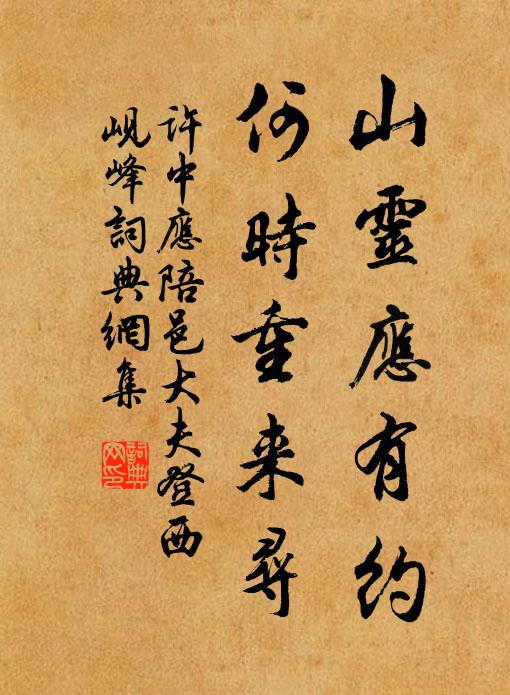 山靈應有約
何時重来尋
許中應陪邑大夫登西
峴峰詞典網集
詞典網印